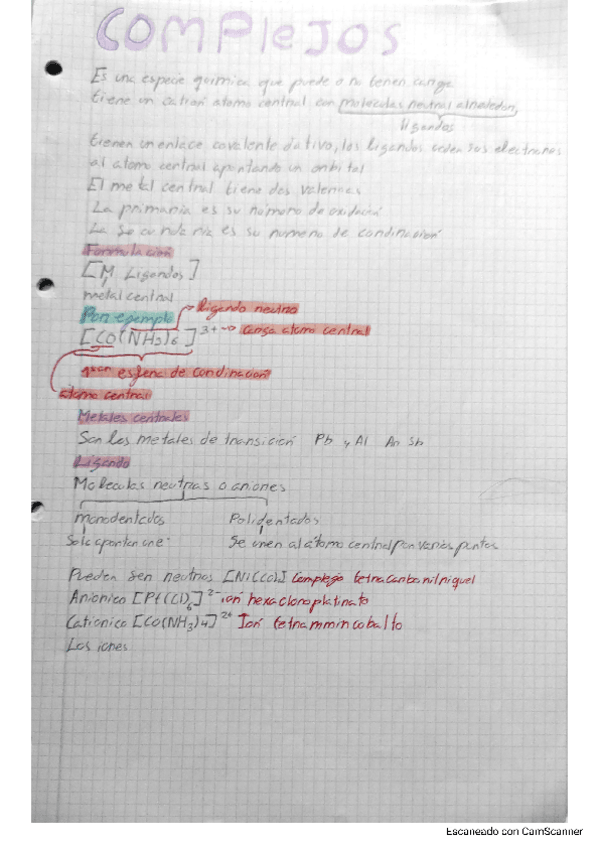 COMPlEJOS
Es una especie quimica que puede o no tener carga
tiene un cation atomo central con moleculas neutral alrrededor,
ligandos
tienen un enlace covalente dativo, los ligandos ceden sus electrones
al atomo central aportando un orbital
El metal central tiene dos valencias
La primaria es su número de oxidación
La secundaria es su numero de cordinación
Formulación
[M, Ligandos]
metal central
Por ejemplo
ligando neutro
[CO(NH3)6]3+ → carga atomo central
esfera de cordinación
atomo central
Metales centrales
Son los metales de transición Pb y Al Sb
Ligando
Moleculas neutras o aniones
monodentados Polidentados
Solo aportan one: Se unen al átomo central por varios puntos
Pueden ser neutros complejo tetracarbonilniquel
Anionico [Pt(Cl)6]2- ion hexacloroplatinato
Cationico [CO(NH3)4]2+ Ion tetrammincobalto
Los iones
Escaneado con CamScanner